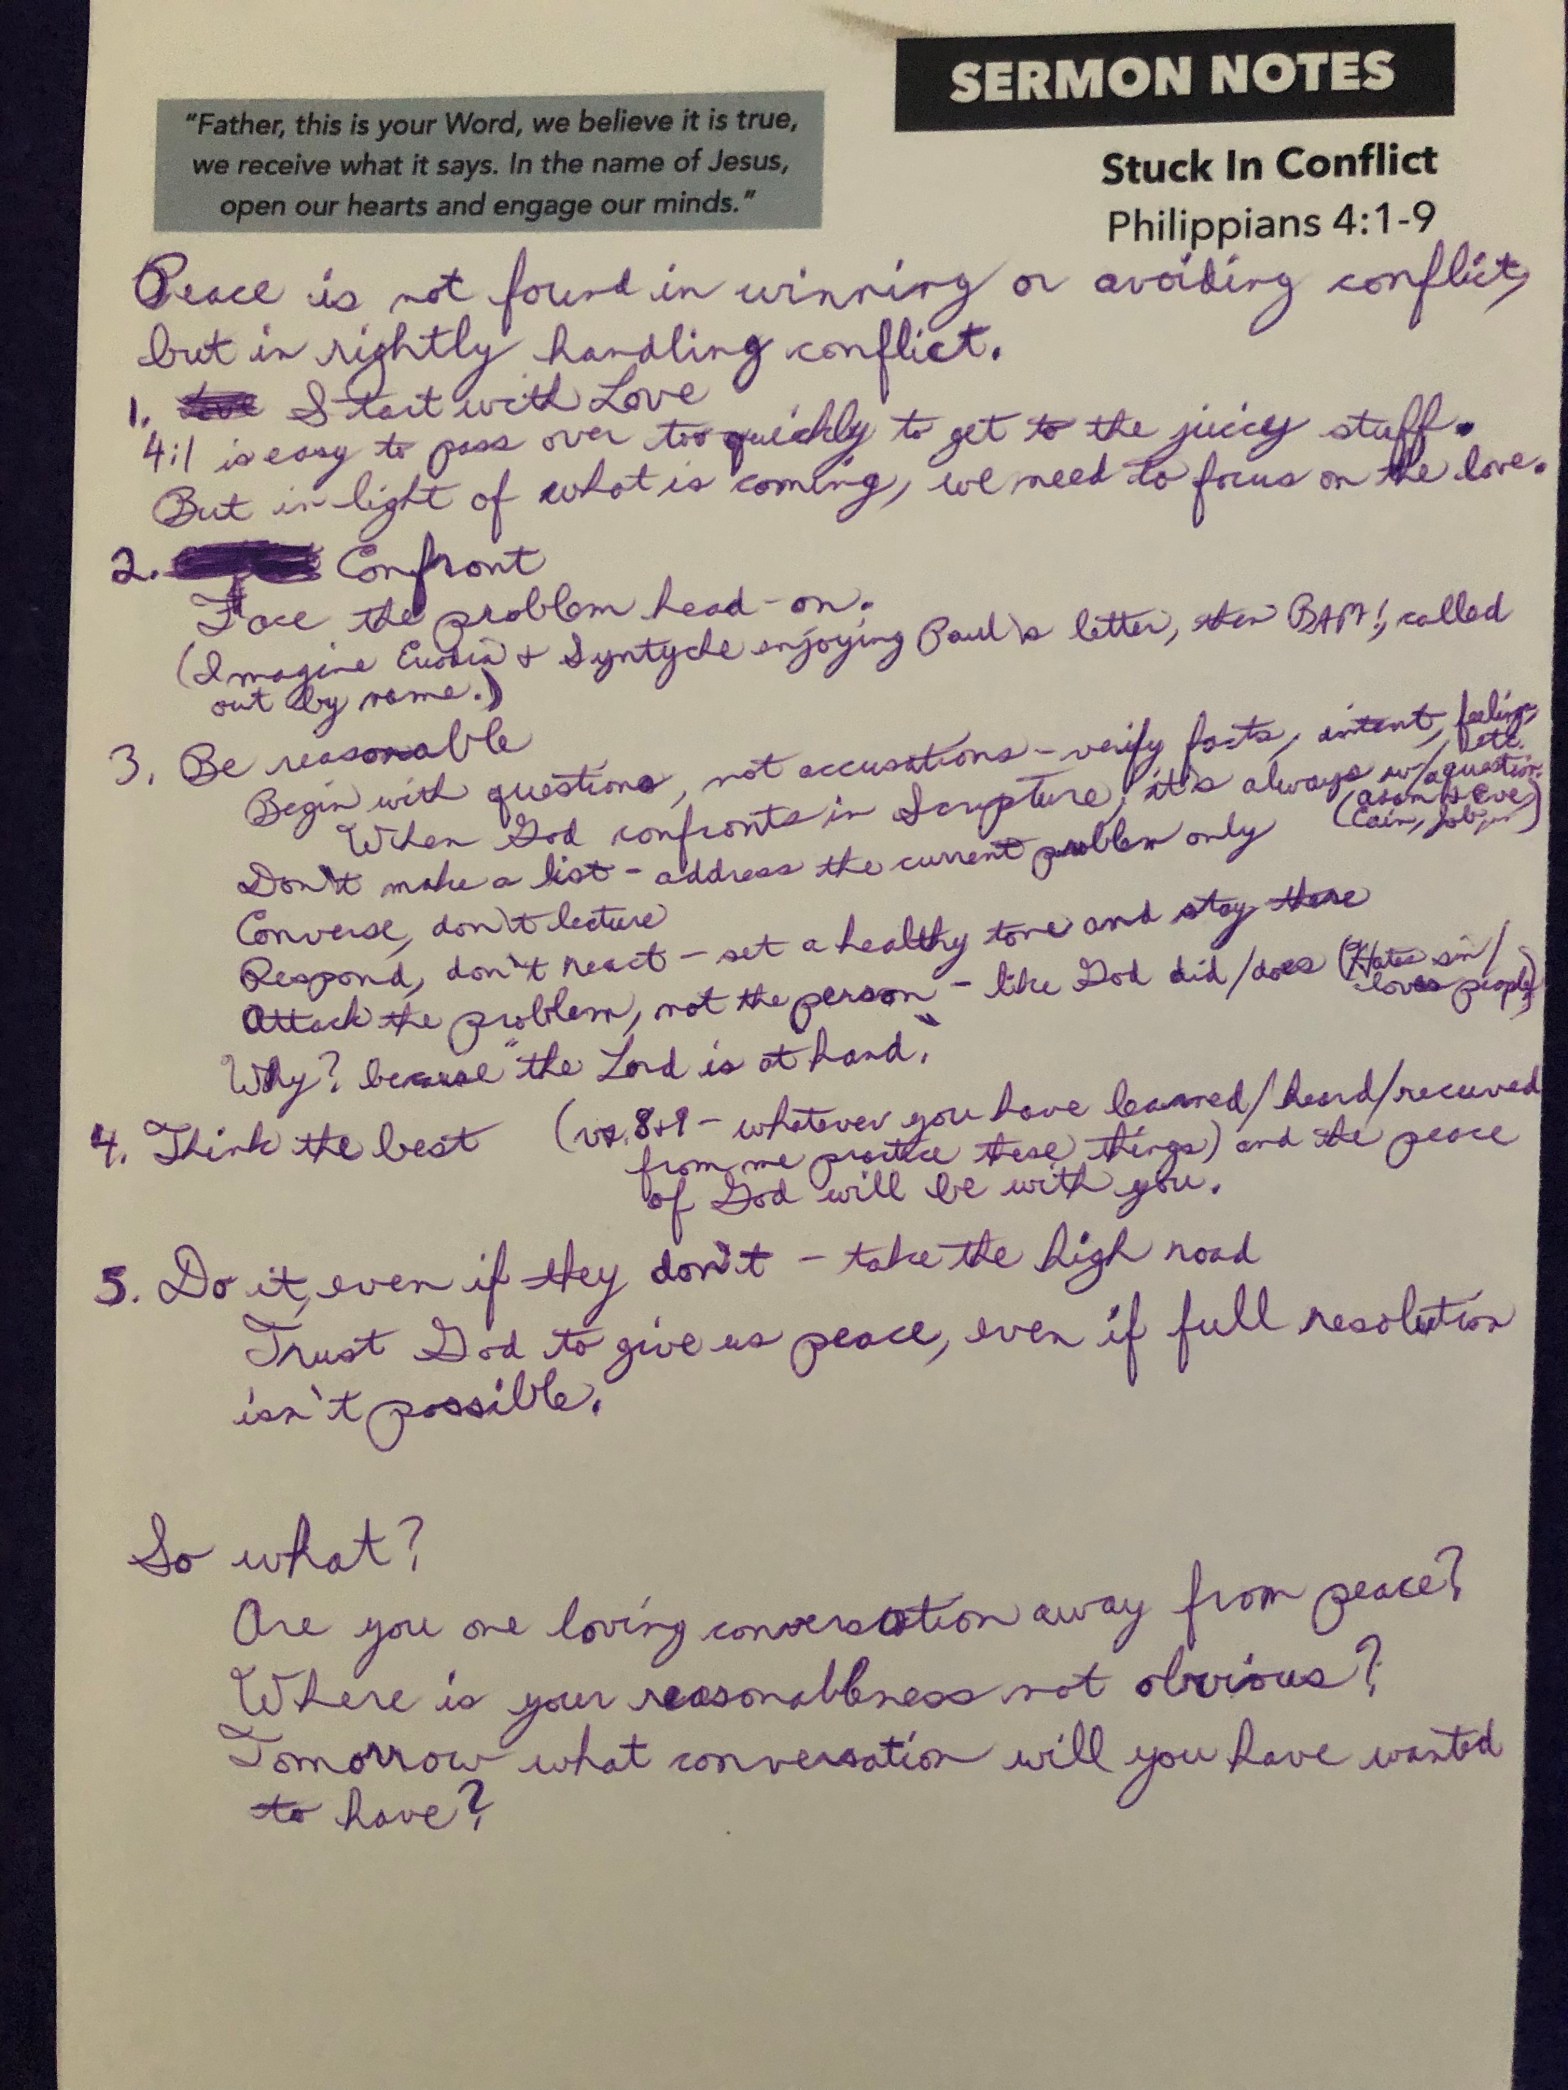 SERMON NOTES
"Father, this is your Word, we believe it is true,
we receive what it says. In the name of Jesus,
open our hearts and engage our minds."
Stuck In Conflict
Philippians 4:1-9
Peace is not found in winning or avoiding conflict,
but in rightly handling conflict.
1. Start with Love
4:1 is easy to pass over too quickly to get to the juicy stuff.
But in light of what is coming, we need to focus on the love.
2. Confront
Face the problem head-on.
(Imagine Euodia & Syntyche enjoying Paul's letter, then BAM!, called
out by name.)
3. Be reasonable
Begin with questions, not accusations - verify facts, intent, feelings,
etc.
When God confronts in Scripture, it's always w/a question
(Adam & Eve,
Cain, Job, )
Don't make a list - address the current problem only
Converse, don't lecture
Respond, don't react - set a healthy tone and stay there
Attack the problem, not the person - like God did/does (Hates sin/
loves people)
Why? because "the Lord is at hand."
4. Think the best (vs. 8+9 - whatever you have learned/heard/received
from me practice these things) and the peace
of God will be with you.
5. Do it, even if they don't - take the high road
Trust God to give us peace, even if full resolution
isn't possible.
So what?
Are you one loving conversation away from peace?
Where is your reasonableness not obvious?
Tomorrow what conversation will you have wanted
to have?